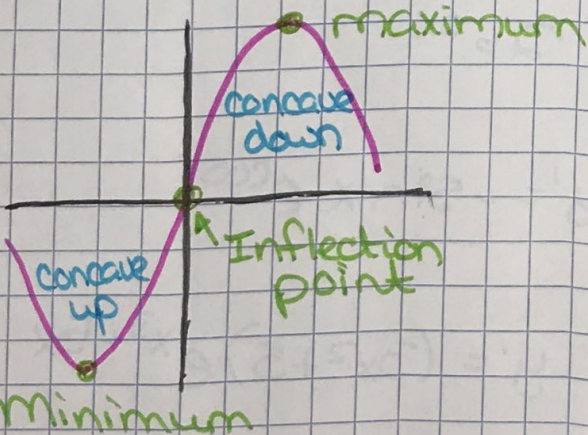 maximum
concave
down
Inflection
point
concave
up
Minimum